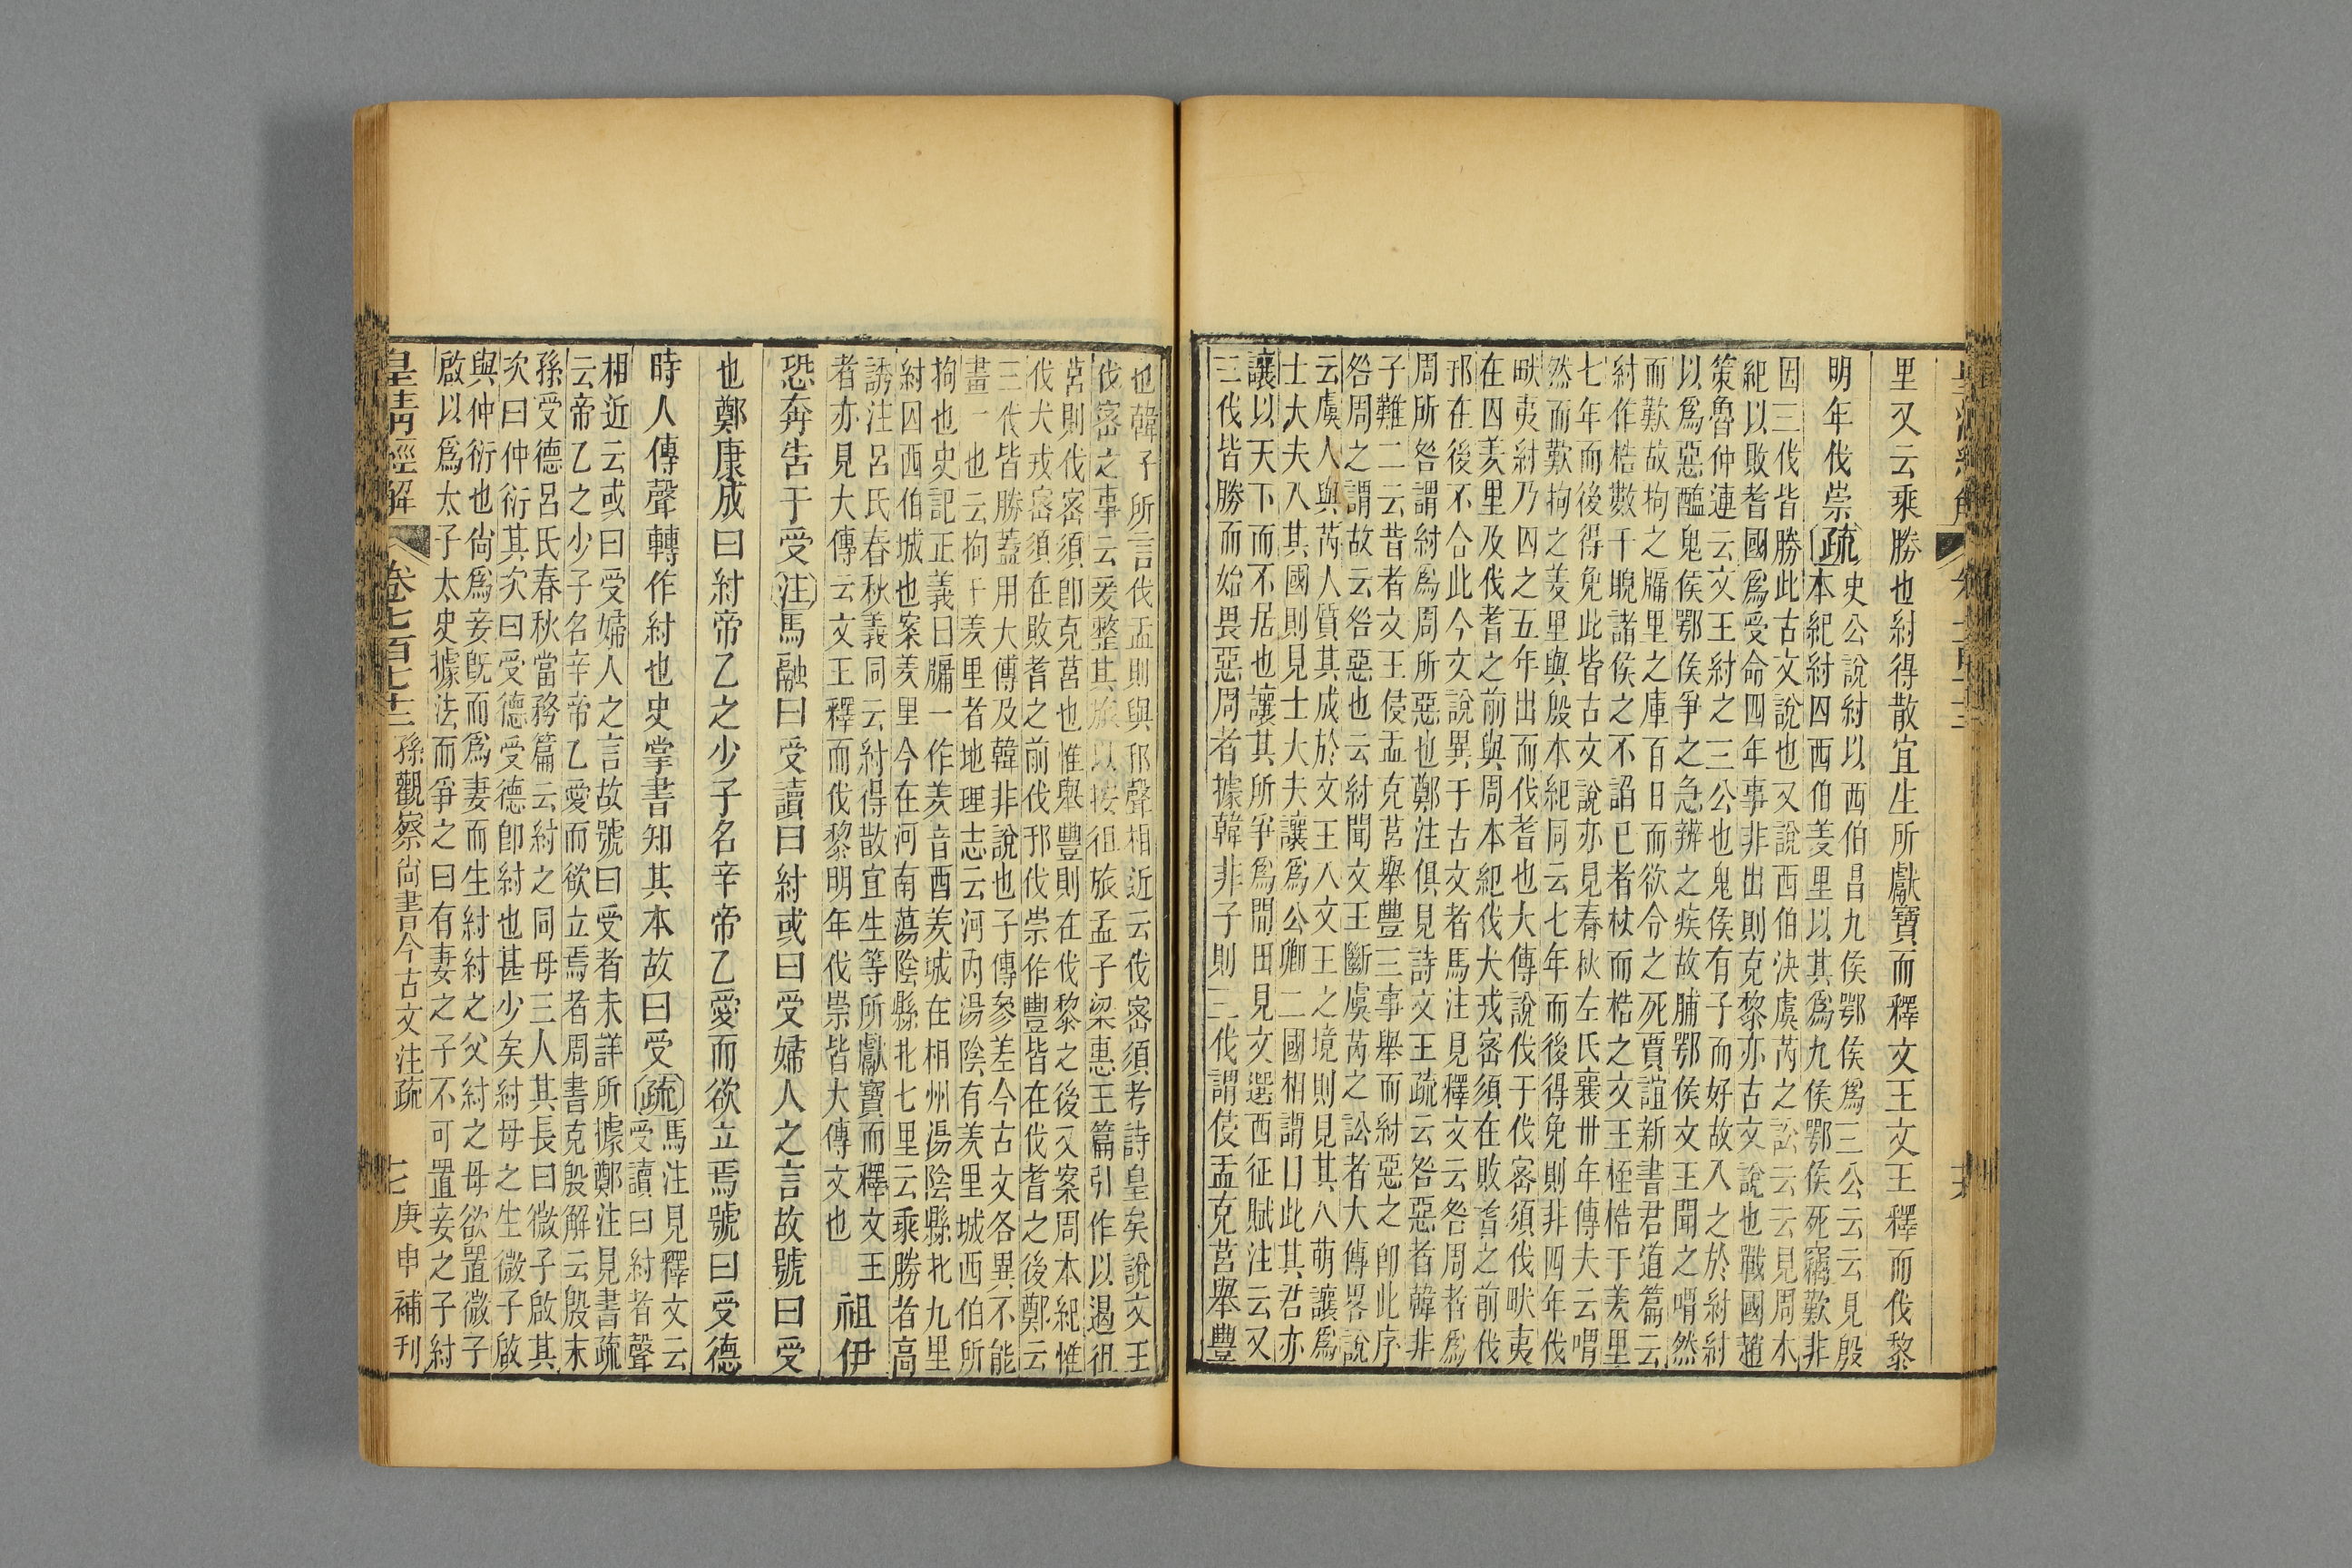 里又云乘勝也紂得散宜生所獻寶而釋文王文王釋而伐黎
明年伐崇疏史公說紂以西伯昌九侯鄂侯爲三公云云見殷
本紀紂囚西伯羑里以其爲九侯鄂侯死竊歎非
因三伐皆勝此古文說也又說西伯決虞芮之訟云云見周本
紀以敗耆國爲受命四年事非出則克黎亦古文說也戰國趙
策魯仲連云文王紂之三公也鬼侯有子而好故入之於紂紂
以爲惡醢鬼侯鄂侯爭之急辨之疾故脯鄂侯文王聞之喟然
而歎故拘之牖里之庫百日而欲令之死賈誼新書君道篇云
紂作梏數千睨諸侯之不諂已者杖而梏之文王桎梏于羑里
七年而後得免此皆古文說亦見春秋左氏襄卅年傳夫云喟
然而歎拘之羑里與殷本紀同云七年而後得免則非四年伐
畎夷紂乃囚之五年出而伐耆也大傳說伐于伐密須伐畎夷
在囚羑里及伐耆之前與周本紀伐犬戎密須在敗耆之前伐
邘在後不合此今文說異于古文者馬注見釋文云咎周者爲
周所咎謂紂爲周所惡也鄭注俱見詩文王疏云咎惡者韓非
子難二云昔者文王侵盂克莒舉豐三事舉而紂惡之卽此序
咎周之謂故云咎惡也云紂聞文王斷虞芮之訟者大傳畧說
云虞人與芮人質其成於文王入文王之境則見其人萌讓爲
士大夫入其國則見士大夫讓爲公卿二國相謂曰此其君亦
讓以天下而不居也讓其所爭爲閒田見文選西征賦注云又
三伐皆勝而始畏惡周者據韓非子則三伐謂侵盂克莒舉豐
也韓子所言伐盂則與邘聲相近云伐密須考詩皇矣說文王
伐密之事云爰整其旅以按徂旅孟子梁惠王篇引作以遏徂
莒則伐密須卽克莒也惟舉豐則在伐黎之後又案周本紀惟
伐犬戎密須在敗耆之前伐邘伐崇作豐皆在伐耆之後鄭云
三伐皆勝蓋用大傳及韓非說也子傳參差今古文各異不能
畫一也云拘于羑里者地理志云河內湯陰有羑里城西伯所
拘也史記正義曰牖一作羑音酉羑城在相州湯陰縣北九里
紂囚西伯城也案羑里今在河南蕩陰縣北七里云乘勝者高
誘注呂氏春秋義同云紂得散宜生等所獻寶而釋文王
者亦見大傳云文王釋而伐黎明年伐崇皆大傳文也
祖伊
恐奔告于受注馬融曰受讀曰紂或曰受婦人之言故號曰受
也鄭康成曰紂帝乙之少子名辛帝乙愛而欲立焉號曰受德
時人傳聲轉作紂也史掌書知其本故曰受疏馬注見釋文云
受讀曰紂者聲
相近云或曰受婦人之言故號曰受者未詳所據鄭注見書疏
云帝乙之少子名辛帝乙愛而欲立焉者周書克殷解云殷末
孫受德呂氏春秋當務篇云紂之同母三人其長曰微子啟其
次曰仲衍其次曰受德受德卽紂也甚少矣紂母之生微子啟
與仲衍也尙爲妾旣而爲妻而生紂紂之父紂之母欲置微子
啟以爲太子太史據法而爭之曰有妻之子不可置妾之子紂
皇淸經解 卷七百七十三 孫觀察尙書今古文注疏 七 庚申補刊